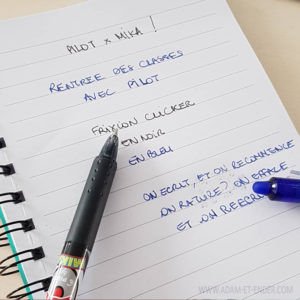 PILOT x MIKA !
RENTRÉE DES CLASSES
AVEC PILOT
FRIXION CLICKER
EN NOIR
EN BLEU
ON ECRIT, ET ON RECOMMENCE
ON RATURE? ON EFFACE
ET ON REECRIT
WWW.ADAM-ET-ENDER.COM